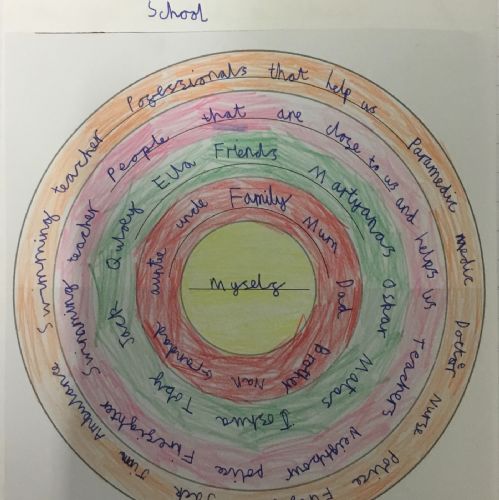 School
Posessionals that help us Paramedic medic Doctor Nurse Police
Jim Ambulance Swimming teacher
People that are close to us and helps us Teachers Neighbour police Firefighter Swimming teacher
Friends Martynas Oskar Matas Joshua Toby Jack Quincy Ella
Family Mum Dad Brother Nan Grandad auntie uncle
Myself